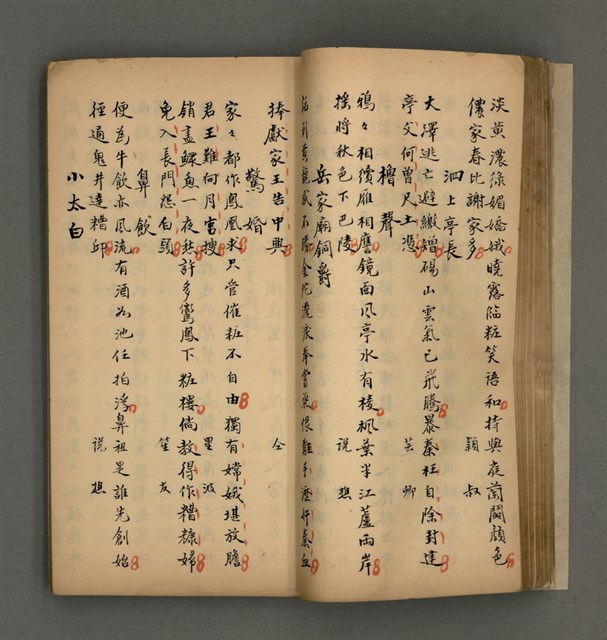 淡黃濃綠媚嬌娥曉窓臨粧笑語和持與庭蘭鬪顏色
儂家春比謝家多　穎叔
泗上亭長
大澤逃亡避繳矰碭山雲氣已飛騰暴秦枉自除封建
亭父何曾尺土憑　芸卿
櫓聲
鴉々相續雁相磨鏡面風亭水有棱楓葉半江蘆兩岸
搖將秋色下巴陵　說想
岳家廟銅爵
捧獻家王告中興　仝
驚婚
家々都作鳳凰求只管催粧不自由獨有嫦娥堪放膽
君王難向月宮搜　星波
銷盡鰥魚一夜愁許多鸞鳳下粧樓倘教得作糟糠婦
免入長門怨白頭　笙友
鼻飲
便為牛飲亦風流有酒為池任拍浮鼻祖是誰先創始
徑通鬼井達糟邱　說想
小太白